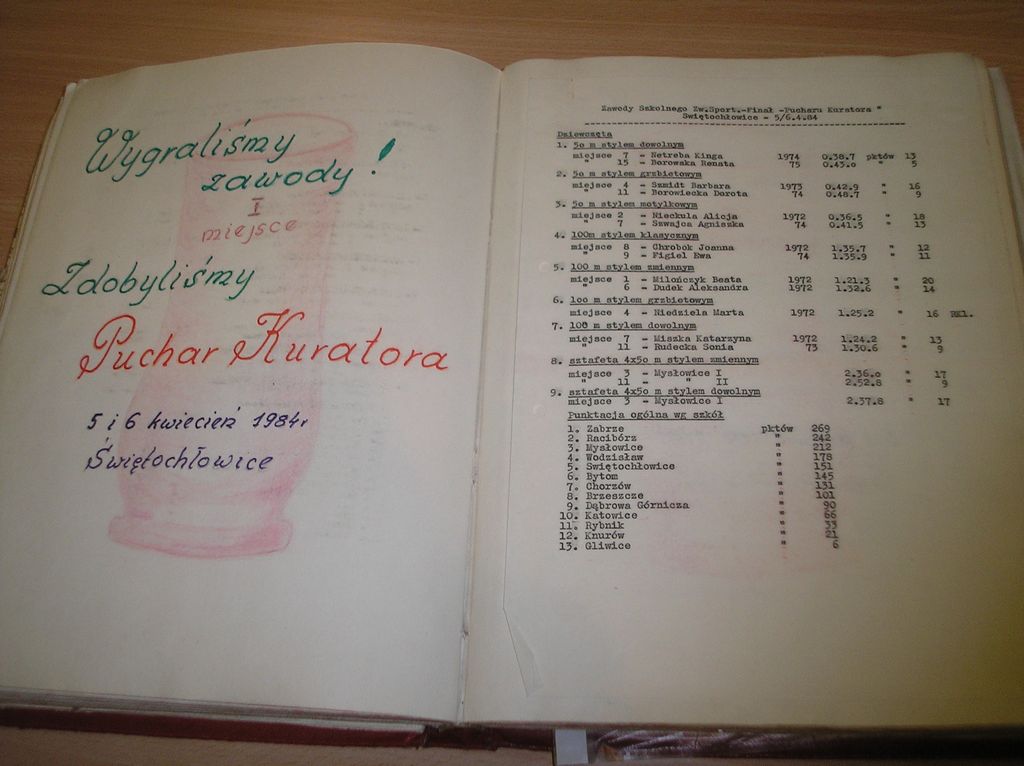 Wygraliśmy
zawody!
I
miejsce
Zdobyliśmy
Puchar Kuratora
5 i 6 kwiecień 1984r
Świętochłowice
Zawody Szkolnego Zw.Sport.-Finał -Pucharu Kuratora "
Swiętochłowice - 5/6.4.84
Dziewczęta
1. 5o m stylem dowolnym
miejsce 7 - Netreba Kinga 1974 0.38.7 pktów 13
" 15 - Borowska Renata 75 0.43.o " 5
2. 5o m stylem grzbietowym
miejsce 4 - Szmidt Barbara 1973 0.42.9 " 16
" 11 - Borowiecka Dorota 74 0.48.7 " 9
3. 5o m stylem motylkowym
miejsce 2 - Nieckula Alicja 1972 0.36.5 " 18
" 7 - Szwajca Agniszka 74 0.41.5 " 13
4. 100m stylem klasycznym
miejsce 8 - Chrobok Joanna 1972 1.35.7 " 12
" 9 - Figiel Ewa 74 1.35.9 " 11
5. 100 m stylem zmiennym
miejsce 1 - Milończyk Beata 1972 1.21.3 " 20
" 6 - Dudek Aleksandra 1972 1.32.6 " 14
6. 1oo m stylem grzbietowym
miejsce 4 - Niedziela Marta 1972 1.25.2 " 16 RKl.
7. 100 m stylem dowolnym
miejsce 7 - Miszka Katarzyna 1972 1.24.2 " 13
" 11 - Rudecka Sonia 73 1.30.6 " 9
8. sztafeta 4x5o m stylem zmiennym
miejsce 3 - Mysłowice I 2.36.o " 17
" 11 - " II 2.52.8 " 9
9. sztafeta 4x5o m stylem dowolnym
miejsce 3 - Mysłowice I 2.37.8 " 17
Punktacja ogólna wg szkół
1. Zabrze pktów 269
2. Racibórz " 242
3. Mysłowice " 212
4. Wodzisław " 178
5. Swiętochłowice " 151
6. Bytom " 145
7. Chorzów " 131
8. Brzeszcze " 101
9. Dąbrowa Górnicza " 90
10. Katowice " 66
11. Rybnik " 33
12. Knurów " 21
13. Gliwice " 6